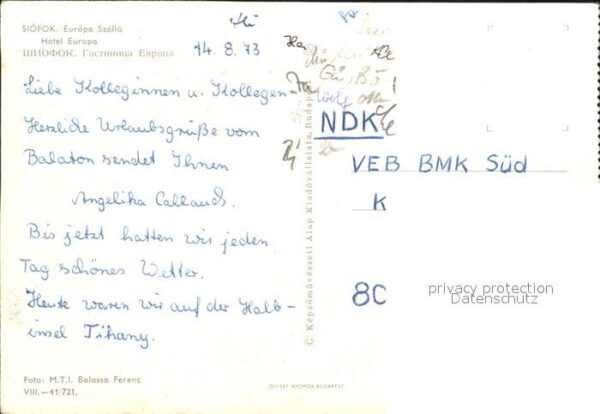 SIÓFOK. Európa Szálló
Hotel Europa
ШИОФОК. Гостиница Европа
14. 8. 73
Liebe Kolleginnen u. Kollegen
Herzliche Urlaubsgrüße vom
Balaton sendet Ihnen
Angelika
Bis jetzt hatten wir jeden
Tag schönes Wetter.
Heute waren wir auf der Halb-
insel Tihany.
Foto: M.T.I. Balassa Ferenc
VIII.—41/721.
© Képzőművészeti Alap Kiadóvállalata, Budapest
OFFSET-NYOMDA, BUDAPEST
NDK
VEB BMK Süd
K
8C
privacy protection
Datenschutz